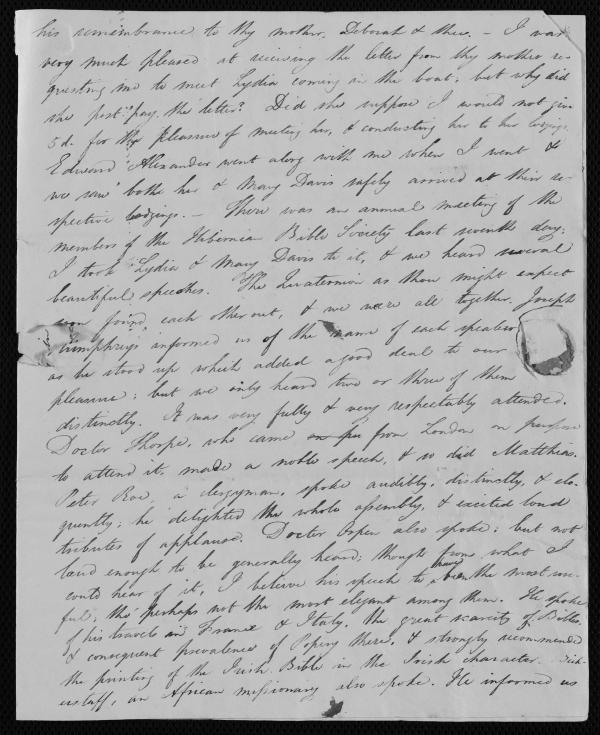 his remembrance to thy mother, Deborah & thee. – I was
very much pleased at receiving the letter from thy mother re-
questing me to meet Lydia coming in the boat; but why did
she post-pay the letter? Did she suppose I would not give
5d. for the pleasure of meeting her, & conducting her to her lodgings.
Edward Alexander went along with me when I went &
we saw both her & Mary Davis safely arrived at their re-
spective lodgings. – There was an annual meeting of the
members of the Hibernian Bible Society last seventh day;
I took Lydia & Mary Davis to it, & we heard several
beautiful speeches. The Quaternion as thou might expect
soon found each other out, & we were all together. Joseph
Humphreys informed us of the name of each speaker
as he stood up which added a good deal to our
pleasure; but we only heard two or three of them
distinctly. It was very fully & very respectably attended.
Doctor Thorpe, who came from London on purpose
to attend it, made a noble speech, & so did Matthias.
Peter Roe, a clergyman, spoke audibly, distinctly, & elo-
quently; he delighted the whole assembly, & excited loud
tributes of applause. Doctor Orpen also spoke; but not
loud enough to be generally heard; though from what I
could hear of it, I believe his speech to have been the most use-
ful; tho' perhaps not the most elegant among them. He spoke
of his travels in France & Italy, the great scarcity of Bibles,
& consequent prevalence of Popery there, & strongly recommended
the printing of the Irish Bible in the Irish character.
an African missionary also spoke. He informed us